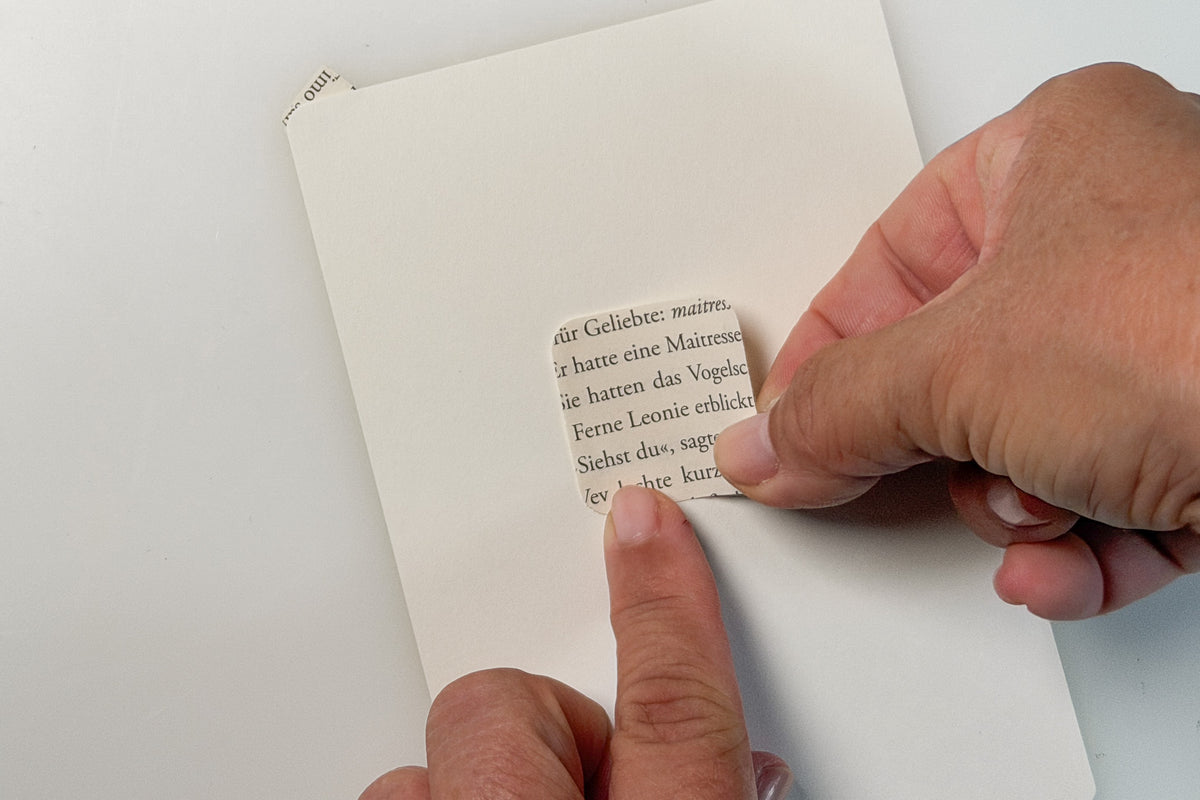 imo
für Geliebte: maitres
Er hatte eine Maitresse
Sie hatten das Vogelsc
Ferne Leonie erblickt
Siehst du«, sagte
kurz